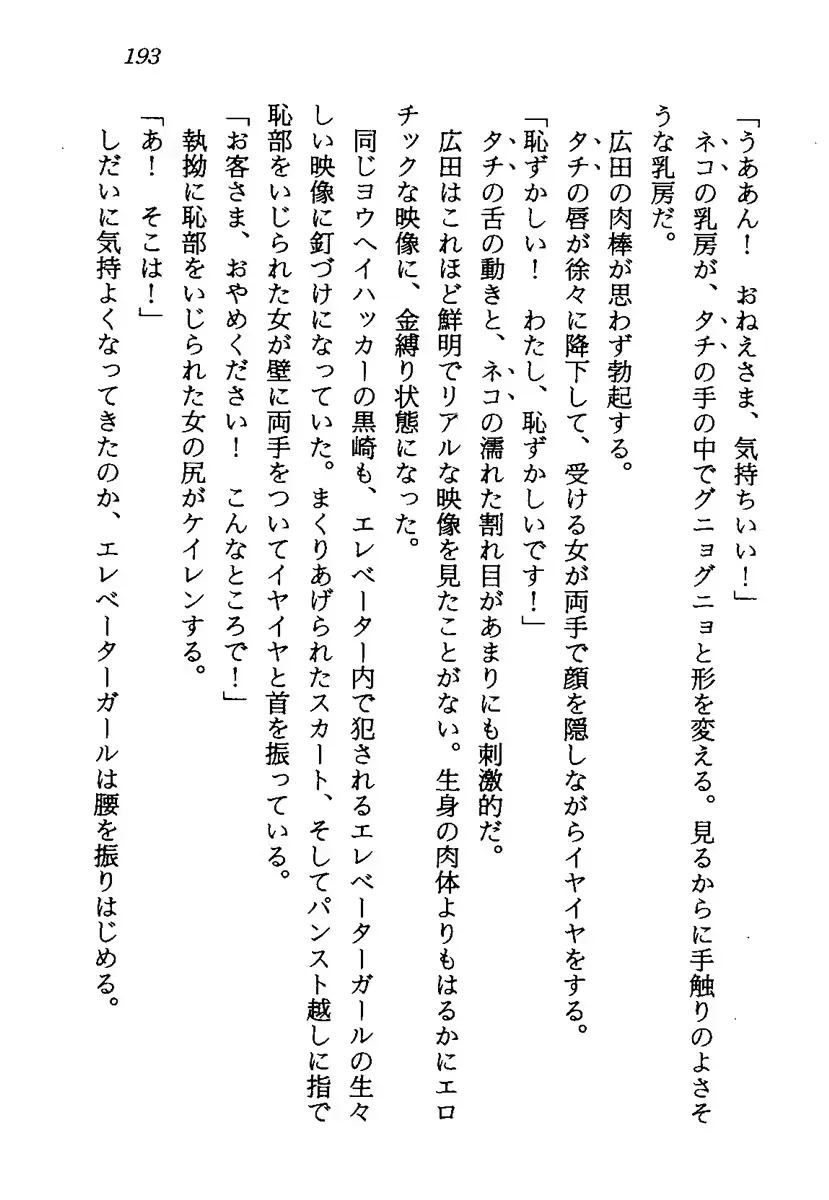 193
「うああん！　おねえさま、気持ちいい！」
　ネコの乳房が、タチの手の中でグニョグニョと形を変える。見るからに手触りのよさそ
うな乳房だ。
　広田の肉棒が思わず勃起する。
　タチの唇が徐々に降下して、受ける女が両手で顔を隠しながらイヤイヤをする。
「恥ずかしい！　わたし、恥ずかしいです！」
　タチの舌の動きと、ネコの濡れた割れ目があまりにも刺激的だ。
　広田はこれほど鮮明でリアルな映像を見たことがない。生身の肉体よりもはるかにエロ
チックな映像に、金縛り状態になった。
　同じヨウヘイハッカーの黒崎も、エレベーター内で犯されるエレベーターガールの生々
しい映像に釘づけになっていた。まくりあげられたスカート、そしてパンスト越しに指で
恥部をいじられた女が壁に両手をついてイヤイヤと首を振っている。
「お客さま、おやめください！　こんなところで！」
　執拗に恥部をいじられた女の尻がケイレンする。
「あ！　そこは！」
　しだいに気持よくなってきたのか、エレベーターガールは腰を振りはじめる。